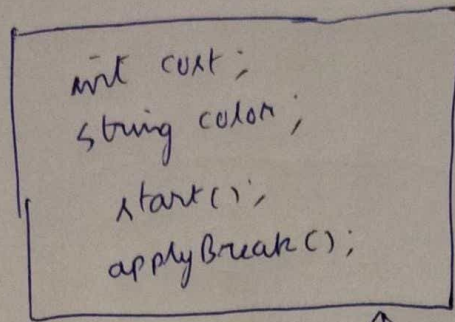 int cost;
string color;
start();
applyBreak();